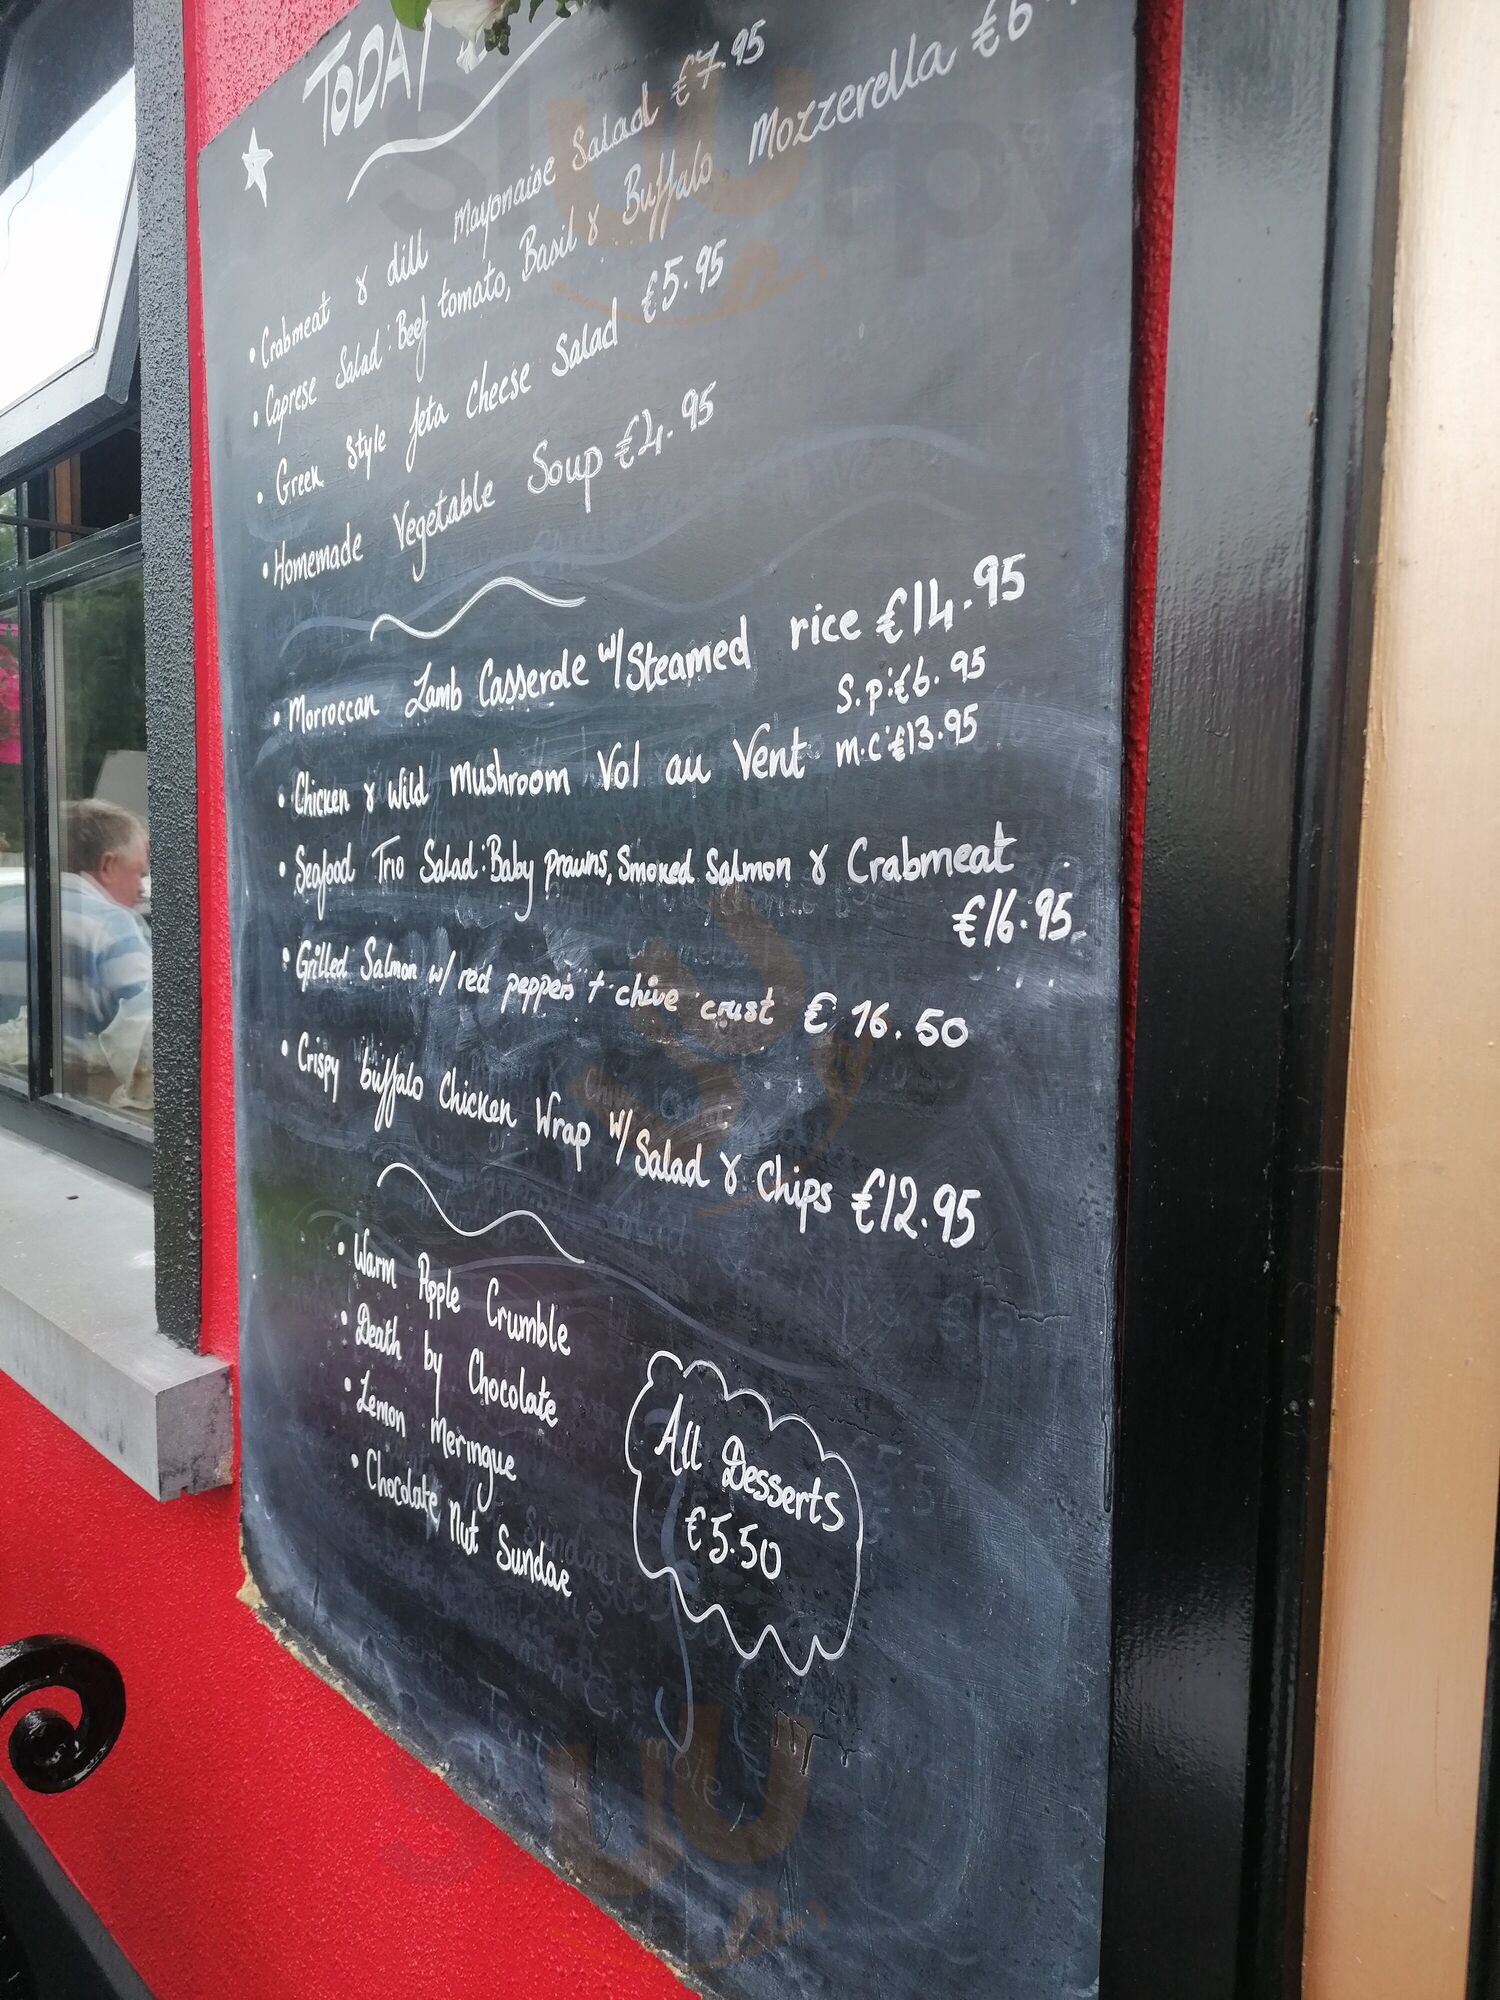 TODAY
• Crabmeat & dill Mayonaise Salad €7.95
• Caprese Salad: Beef tomato, Basil & Buffalo Mozzerella €6
• Greek Style feta Cheese Salad €5.95
• Homemade Vegetable Soup €4.95
• Morroccan Lamb Casserole w/ Steamed rice €14.95
S.p: €6.95
• Chicken & Wild mushroom Vol au Vent m.c: €13.95
• Seafood Trio Salad: Baby prawns, Smoked Salmon & Crabmeat
€16.95
• Grilled Salmon w/ red peppers + chive crust € 16.50
• Crispy buffalo Chicken Wrap w/ Salad & Chips €12.95
• Warm Apple Crumble
• Death by Chocolate
• Lemon Meringue
• Chocolate Nut Sundae
All Desserts
€5.50
Sluurpy
Sluurpy